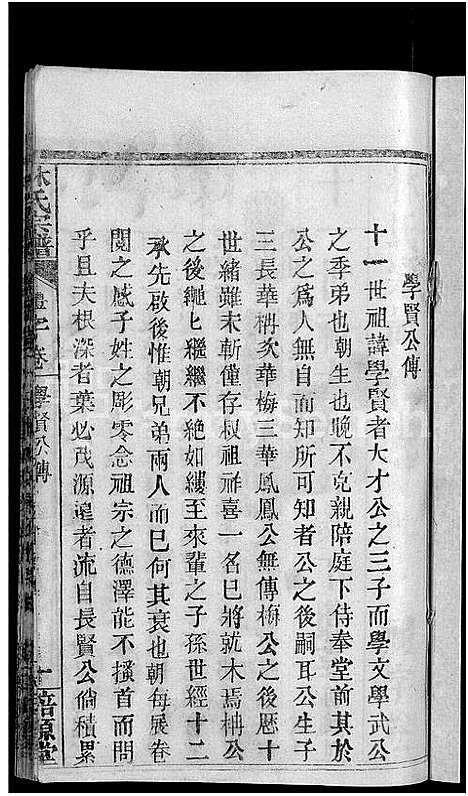 學賢公傳
十一世祖諱學賢者大才公之三子而學文學武公
之季弟也朝生也晚不克親陪庭下侍奉堂前其於
公之爲人無自而知所可知者公之後嗣耳公生子
三長華柟次華梅三華鳳鳳公無傳梅公之後歷十
世緒雖未斬僅存叔祖祥喜一名巳將就木焉柟公
之後繩匕繼繼不絶如縷至來輩之子孫世經十二
承先啟後惟朝兄弟兩人而巳何其衰也朝每展卷
閱之感子姓之彫零念祖宗之德澤能不搔首而問
乎且夫根深者葉必茂源遠者流自長賢公倘積累
林氏宗譜
卷
學賢公傳
一
培源堂